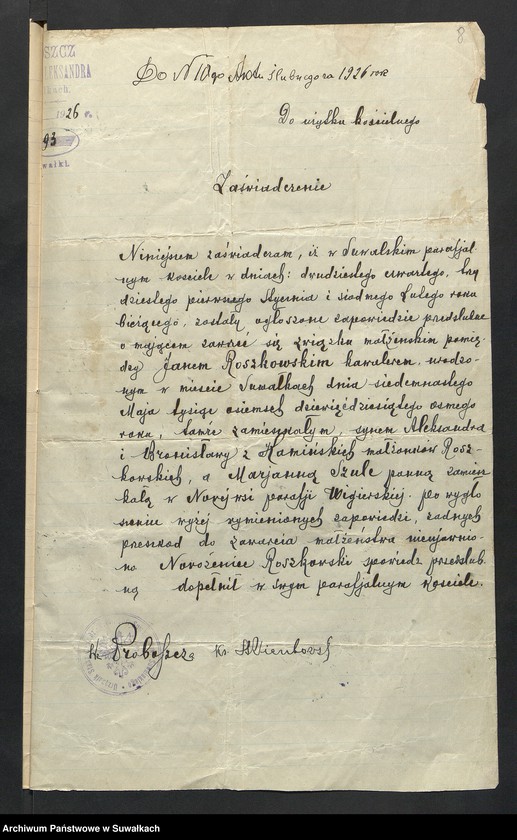 8
SZCZ
LEKSANDRA
kach.
1926 r.
93
wałki.
Do N 10go Aktu ślubnego za 1926 rok
Do użytku kościelnego
Zaświadczenie
Niniejszem zaświadczam, iż w Suwalskim parafjal
nym kościele w dniach: dwudziestego czwartego, trzy
dziestego pierwszego Stycznia i siódmego Lutego roku
bieżącego, zostały ogłoszone zapowiedzie przedślubne
o mającem zawrzeć się związku małżeńskim pomię-
dzy Janem Roszkowskim kawalerem, urodzo-
nym w mieście Suwałkach dnia siedemnastego
Maja tysiąc osiemset dziewięćdziesiątego ósmego
roku, tamże zamieszkałym, synem Aleksandra
i Bronisławy z Kamińskich małżonków Rosz-
kowskich, a Marjanną Szulc panną zamiesz
kałą w Nowej wsi parafji Wigierskiej. Po wygło
szeniu wyżej wymienionych zapowiedzi, żadnych
przeszkód do zawarcia małżeństra nieujawnio-
no Nowożeniec Roszkowski spowiedź przedślub
ną dopełnił w swym parafjalnym kościele.
Proboszcz Ks.